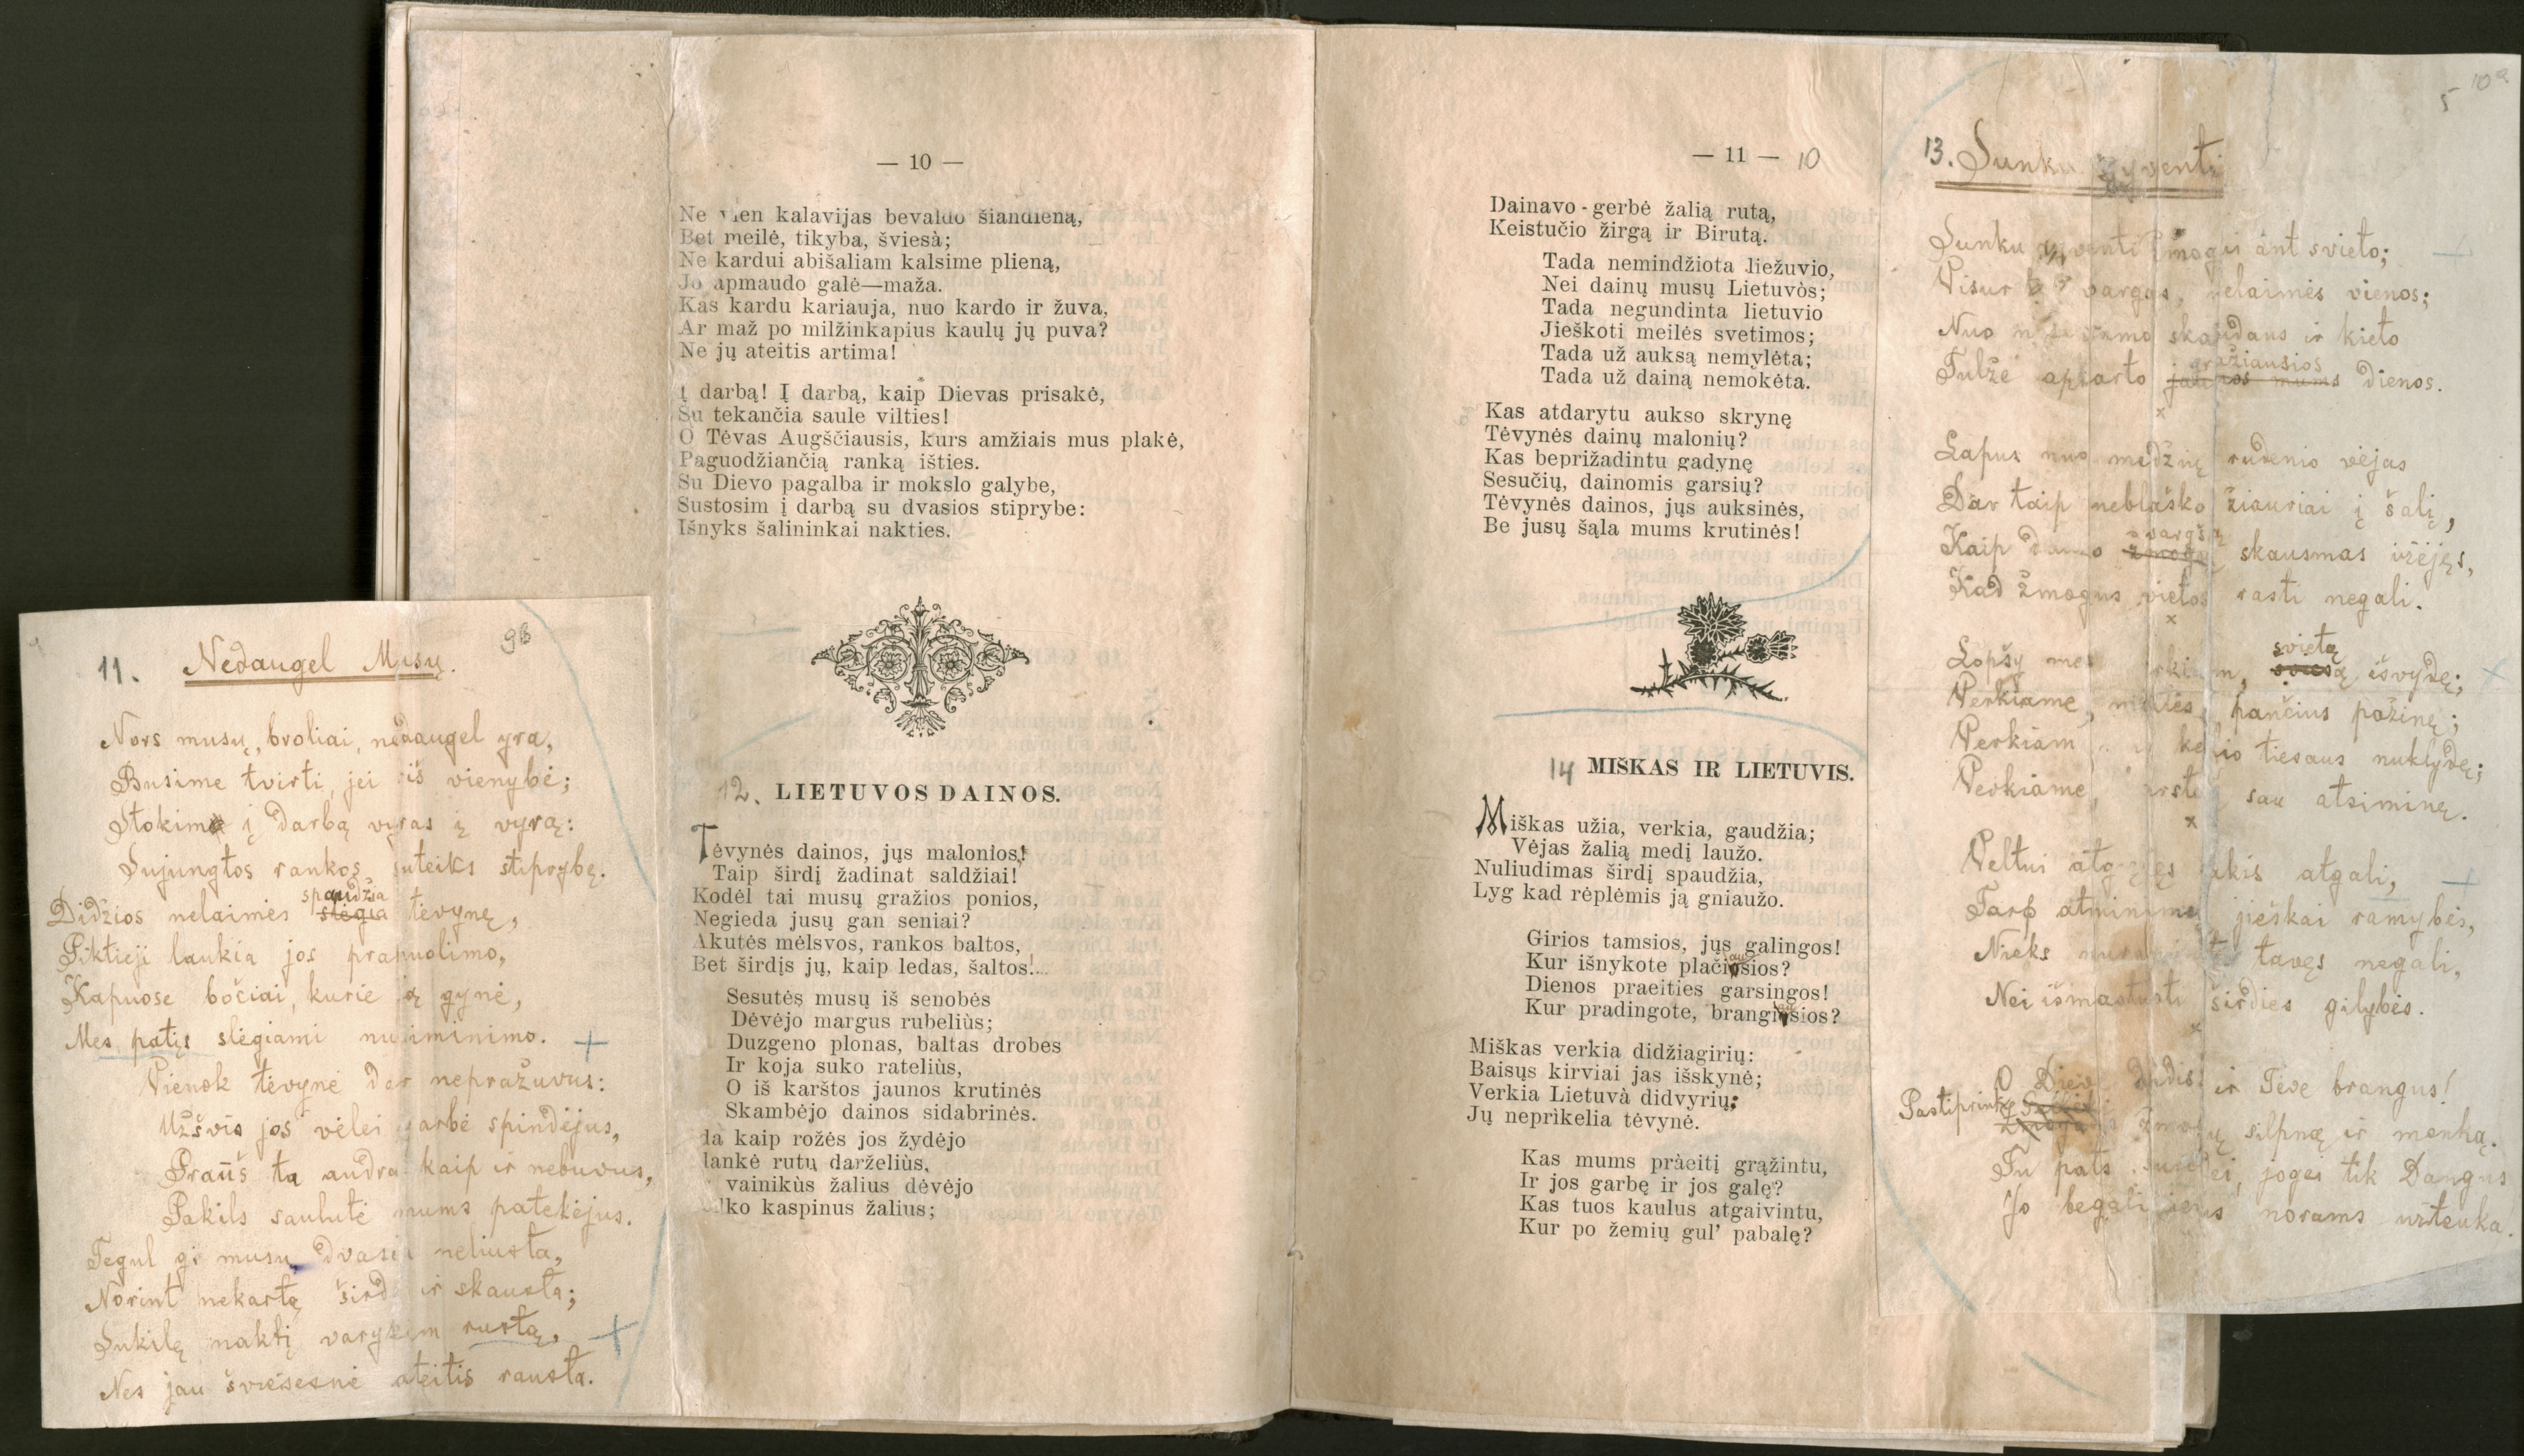 11. Nedaugel Musų.
9b
Nors musų, broliai, nedaugel yra,
Busime tvirti, jei iš vienybė;
Stokime į darbą vyras į vyrą:
Sujungtos rankos suteiks stiprybę.
spaudžia
Didžios nelaimės slėgia tėvynę,
Piktieji laukia jos prapuolimo,
Kapuose bočiai, kurie ją gynė,
Mes patįs slėgiami nusiminimo.
Vienok tėvynė dar nepražuvus:
Užšvis jos vėlei garbė spindėjus,
Praūš ta audra kaip ir nebuvus,
Pakils saulutė mums patekėjus.
Tegul gi musų dvasia neliusta,
Norint nekartą širdį ir skausta;
Sukilę naktį varykim rustą,
Nes jau šviesesnė ateitis rausta.
— 10 —
Ne vien kalavijas bevaldo šiandieną,
Bet meilė, tikyba, šviesà;
Ne kardui abišaliam kalsime plieną,
Jo apmaudo galė—maža.
Kas kardu kariauja, nuo kardo ir žuva,
Ar maž po milžinkapius kaulų jų puva?
Ne jų ateitis artima!
Į darbą! Į darbą, kaip Dievas prisakė,
Su tekančia saule vilties!
O Tėvas Augščiausis, kurs amžiais mus plakė,
Paguodžiančią ranką išties.
Su Dievo pagalba ir mokslo galybe,
Sustosim į darbą su dvasios stiprybe:
Išnyks šalininkai nakties.
12. LIETUVOS DAINOS.
Tėvynės dainos, jųs malonios!
Taip širdį žadinat saldžiai!
Kodėl tai musų gražios ponios,
Negieda jusų gan seniai?
Akutės mėlsvos, rankos baltos,
Bet širdįs jų, kaip ledas, šaltos!...
Sesutės musų iš senobės
Dėvėjo margus rubeliùs;
Duzgeno plonas, baltas drobes
Ir koja suko rateliùs,
O iš karštos jaunos krutinės
Skambėjo dainos sidabrinės.
da kaip rožės jos žydėjo
lankė rutų darželiùs,
vainikùs žalius dėvėjo
lko kaspinus žalius;
— 11 — 10
Dainavo-gerbė žalią rutą,
Keistučio žirgą ir Birutą.
Tada nemindžiota liežuvio,
Nei dainų musų Lietuvòs;
Tada negundinta lietuvio
Jieškoti meilės svetimos;
Tada už auksą nemylėta;
Tada už dainą nemokėta.
Kas atdarytu aukso skrynę
Tėvynės dainų malonių?
Kas beprižadintu gadynę
Sesučių, dainomis garsių?
Tėvynės dainos, jųs auksinės,
Be jusų šąla mums krutinės!
14 MIŠKAS IR LIETUVIS.
Miškas užia, verkia, gaudžia;
Vėjas žalią medį laužo.
Nuliudimas širdį spaudžia,
Lyg kad rėplėmis ją gniaužo.
Girios tamsios, jųs galingos!
Kur išnykote plačiausios?
Dienos praeities garsingos!
Kur pradingote, brangiausios?
Miškas verkia didžiagirių:
Baisųs kirviai jas išskynė;
Verkia Lietuvà didvyrių;
Jų neprìkelia tėvynė.
Kas mums pràeitį grąžintu,
Ir jos garbę ir jos galę?
Kas tuos kaulus atgaivintu,
Kur po žemių gul' pabalę?
5 10a
13. Sunku gyventi
Sunku gyventi žmogui ant svieto;
Visur vargas, nelaimės vienos;
Nuo skaudaus ir kieto
gražiausios
Tulžė apkarto dienos.
Lapus nuo medžių rudenio vėjas
Dar taip neblaško žiauriai į šalį,
vargšą
Kaip dauzo žmogų skausmas užėjęs,
Kad žmogus vietos rasti negali.
svietą
Lopšy mes verkiam, šviesą išvydę;
Verkiame, meilės pančius pažinę;
Verkiam kelio tiesaus nuklydę;
Verkiame, karstą sau atsiminę.
Veltui atgręžęs akis atgali,
Tarp atminimų jieškai ramybės,
Nieks nuraminti tavęs negali,
Nei išmatuoti širdies gilybės.
O Dieve didis ir Tėve brangus!
Pastiprinki žmogų silpną ir menką.
Tu pats sutvėrei, jogei tik Dangus
Jo begaliniems norams užtenka.